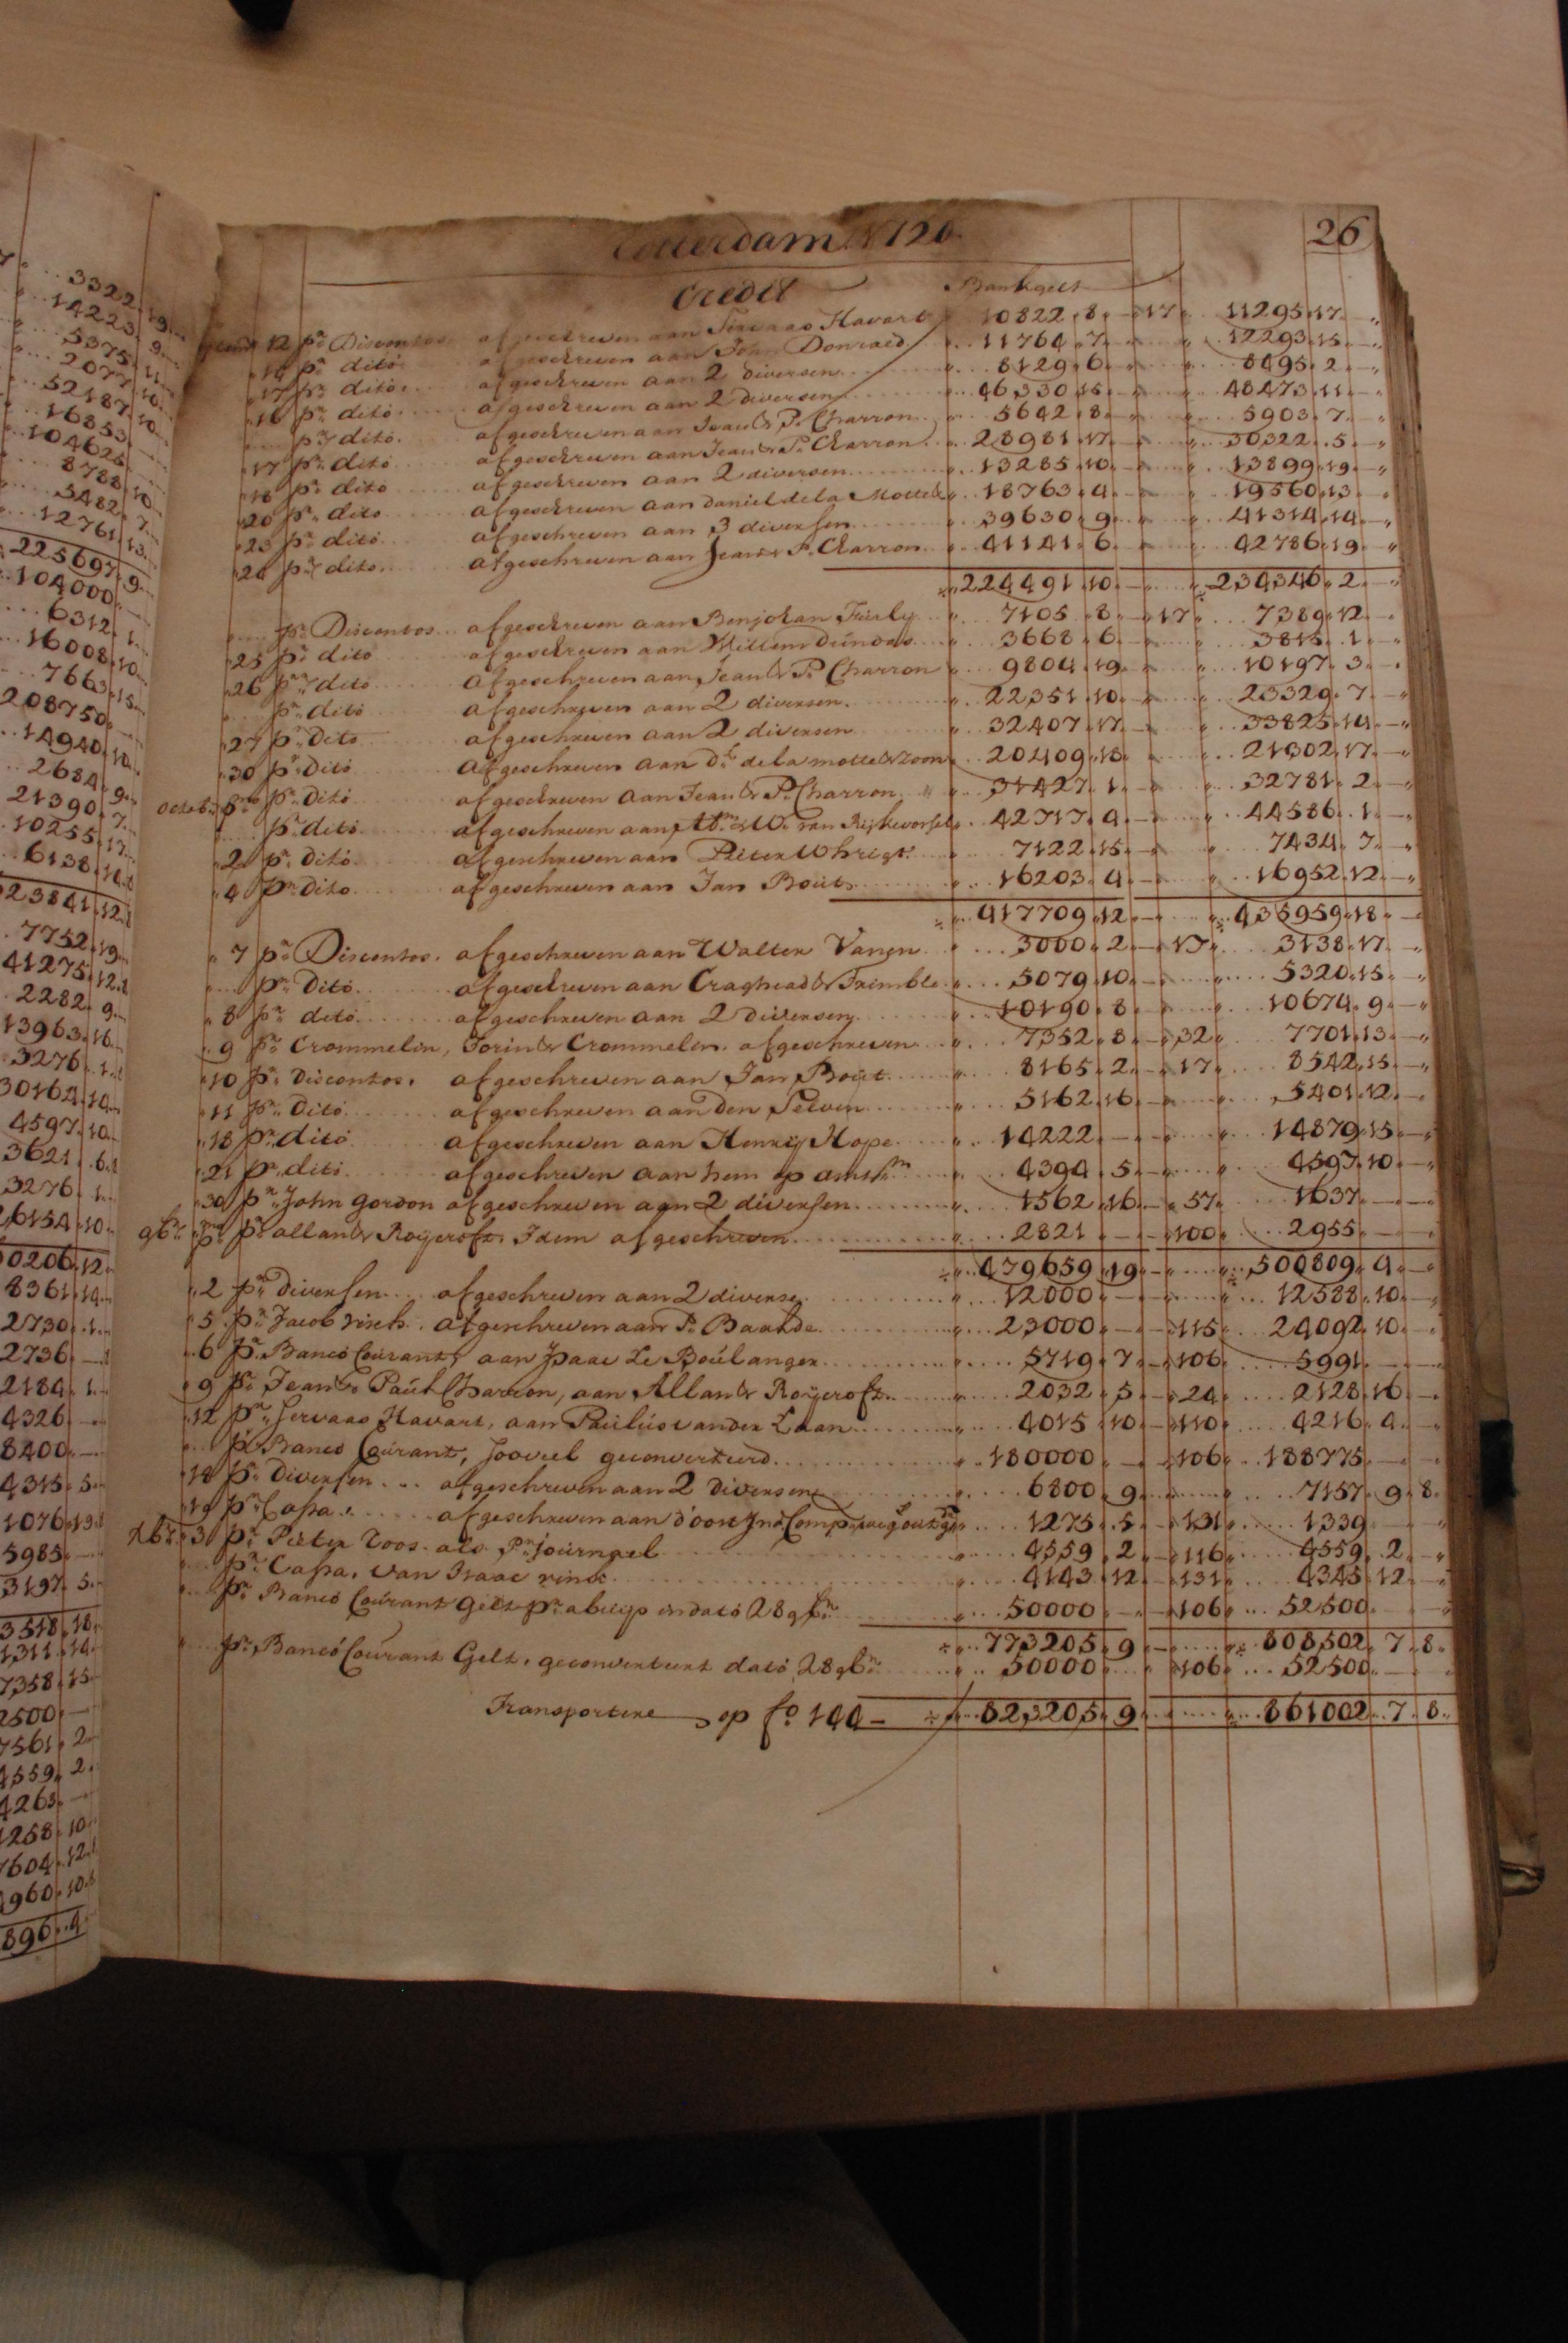 3322 19
14223 9
5375 11
2077 10
52187 10
16853
104625
8788 10
5482 7
12761 13
225697 9
104000
6312 1
16008 10
7663 15
208750
14940 10
2684 9
21390 7
10255 17
6138 14
23841 12
7752 19
41275 12
2282 9
13963 16
3276 1
30164 14
4597 10
3621 6
3276 1
26154 10
0206 12
8361 14
2730 1
2736
2184 1
4326
8400
4315 5
1076 13
5985
3197 5
3518 18
1311 14
7358 15
2500
7561 2
4559 2
4263
1258 10
7604 12
960 10
896 4
Rotterdam A 1720 26
Credit Bankgelt
12 pr Discontos afgeschreven aan Servaas Havart 10822 8 17 11295 17
14 pr dito afgeschreven aan John Doncaed 11764 7 12293 15
17 pr dito afgeschreven aan 2 diversen 8129 6 8495 2
16 pr dito afgeschreven aan 2 diversen 46330 15 48473 11
pr dito afgeschreven aan Jean & P. Charron 5642 8 5903 7
17 pr dito afgeschreven aan Jean & P. Charron 28981 17 30322 5
18 pr dito afgeschreven aan 2 diversen 13285 10 13899 19
20 pr dito afgeschreven aan daniel de la Motte & 18763 4 19560 13
23 pr dito afgeschreven aan 3 diversen 39630 9 41314 14
24 pr dito afgeschreven aan Jean & P. Charron 41141 6 42786 19
224491 10 234346 2
pr Discontos afgeschreven aan Benjohan Furly 7105 8 17 7389 12
25 pr dito afgeschreven aan Willem Dundas 3668 6 3815 1
26 pr dito afgeschreven aan Jean & P. Charron 9804 19 10197 3
pr dito afgeschreven aan 2 diversen 22351 10 23329 7
27 pr Dito afgeschreven aan 2 diversen 32407 17 33825 14
30 pr Dito afgeschreven aan Dl de la motte & zoon 20409 18 21302 17
octob: pmo pr Dito afgeschreven aan Jean & P. Charron 31427 1 32781 2
pr dito afgeschreven aan Abm & W. van Rijkevorsel 42717 4 44586 1
2 pr Dito afgeschreven aan Pieter Whrigt 7122 15 7434 7
4 pr Dito afgeschreven aan Jan Bout 16203 4 16952 12
417709 12 435959 18
7 pr Discontos afgeschreven aan Walter Vanen 3000 2 17 3138 17
pr Dito afgeschreven aan Craghead & Trimble 5079 10 5320 15
8 pr dito afgeschreven aan 2 Diversen 10190 8 10674 9
9 pr Crommelin, Torin & Crommelin afgeschreven 7352 8 32 7701 13
10 pr Discontos afgeschreven aan Jan Bout 8165 2 17 8542 15
11 pr Dito afgeschreven aan den Selven 5162 16 5401 12
18 pr dito afgeschreven aan Henrij Hope 14222 14879 15
21 pr dito afgeschreven aan hem op amstm 4394 5 4597 10
30 pr John Gordon afgeschreven aan 2 diversen 1562 16 57 1637
9br pmo pr allan & Roijcroft Idem afgeschreven 2821 100 2955
479659 19 500809 4
2 pr Diversen afgeschreven aan 2 diverse 12000 12588 10
5 pr Jacob visch afgeschreven aan P. Baalde 23000 115 24092 10
6 pr Banco Courant, aan Isaac Le Boulanger 5719 7 106 5991
9 pr Jean & Paul Charron, aan Allan & Roijcroft 2032 5 24 2128 16
12 pr Servaas Havart, aan Paulus vander Laan 4015 10 110 4216 4
pr Banco Courant, Sooveel geconverteerd 180000 106 188775
18 pr Diversen afgeschreven aan 2 Diversen 6800 9 7157 9 8
19 pr Cassa afgeschreven aan d'oost Ind Comp 1275 5 131 1339
Xbr 3 pr Pieter Roos als pr journael 4559 2 116 4559 2
pr Cassa, van Isaac vinck 4143 12 131 4345 12
pr Banco Courant Gelt pr abuijs in dato 28 9br 50000 106 52500
773205 9 808502 7 8
pr Banco Courant Gelt, geconverteert dato 28 9br 50000 106 52500
Transportere op fo 144 823205 9 861002 7 8